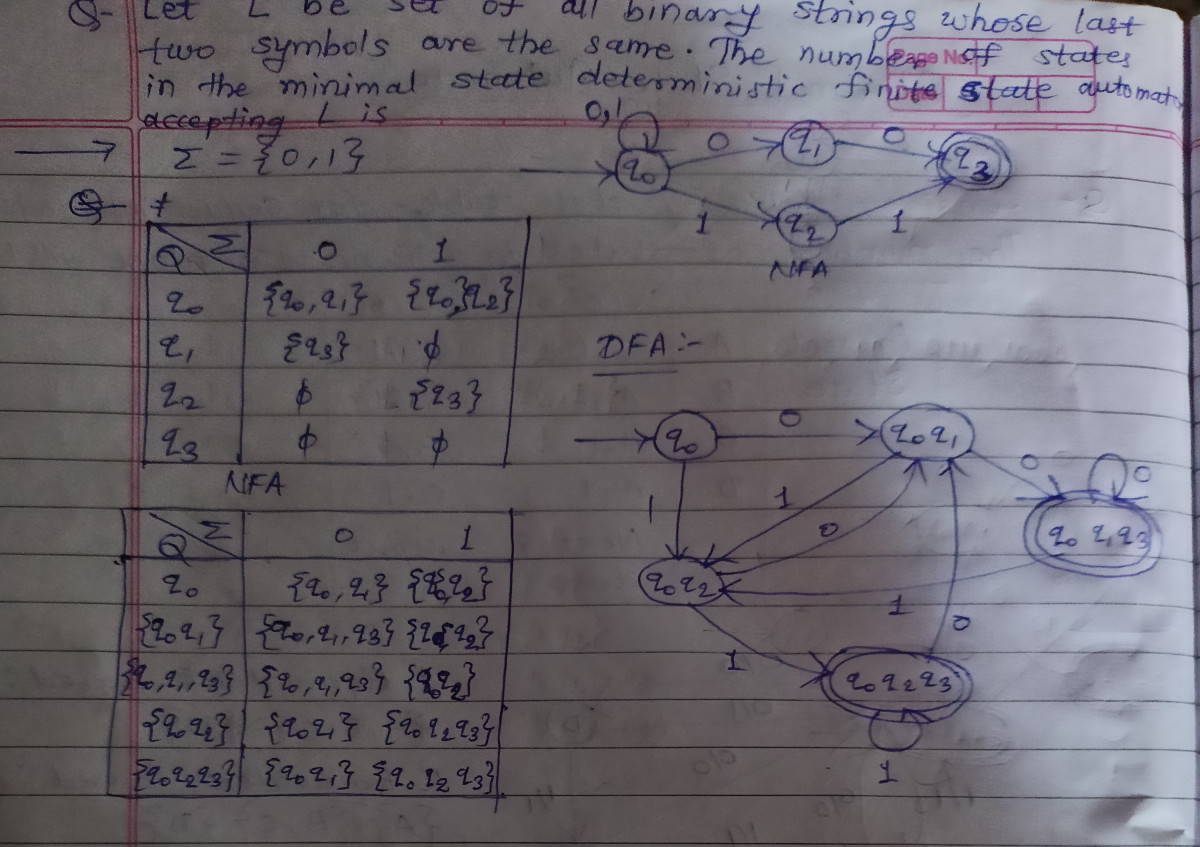 Q- Let L be set of all binary strings whose last
two symbols are the same. The number of states
in the minimal state deterministic finite state automat
accepting L is
Σ = {0,1}
0,1
q0 0 q1 0 q3
1 q2 1
NFA
Q Σ 0 1
q0 {q0,q1} {q0,q2}
q1 {q3} ϕ
q2 ϕ {q3}
q3 ϕ ϕ
NFA
Q Σ 0 1
q0 {q0,q1} {q0,q2}
{q0q1} {q0,q1,q3} {q0,q2}
{q0,q1,q3} {q0,q1,q3} {q0q2}
{q0q2} {q0q1} {q0q2q3}
{q0q2q3} {q0q1} {q0q2q3}
DFA :-
q0 0 q0q1
1 1 0 0 0
q0q2 q0q1q3
1 1 0
q0q2q3
1